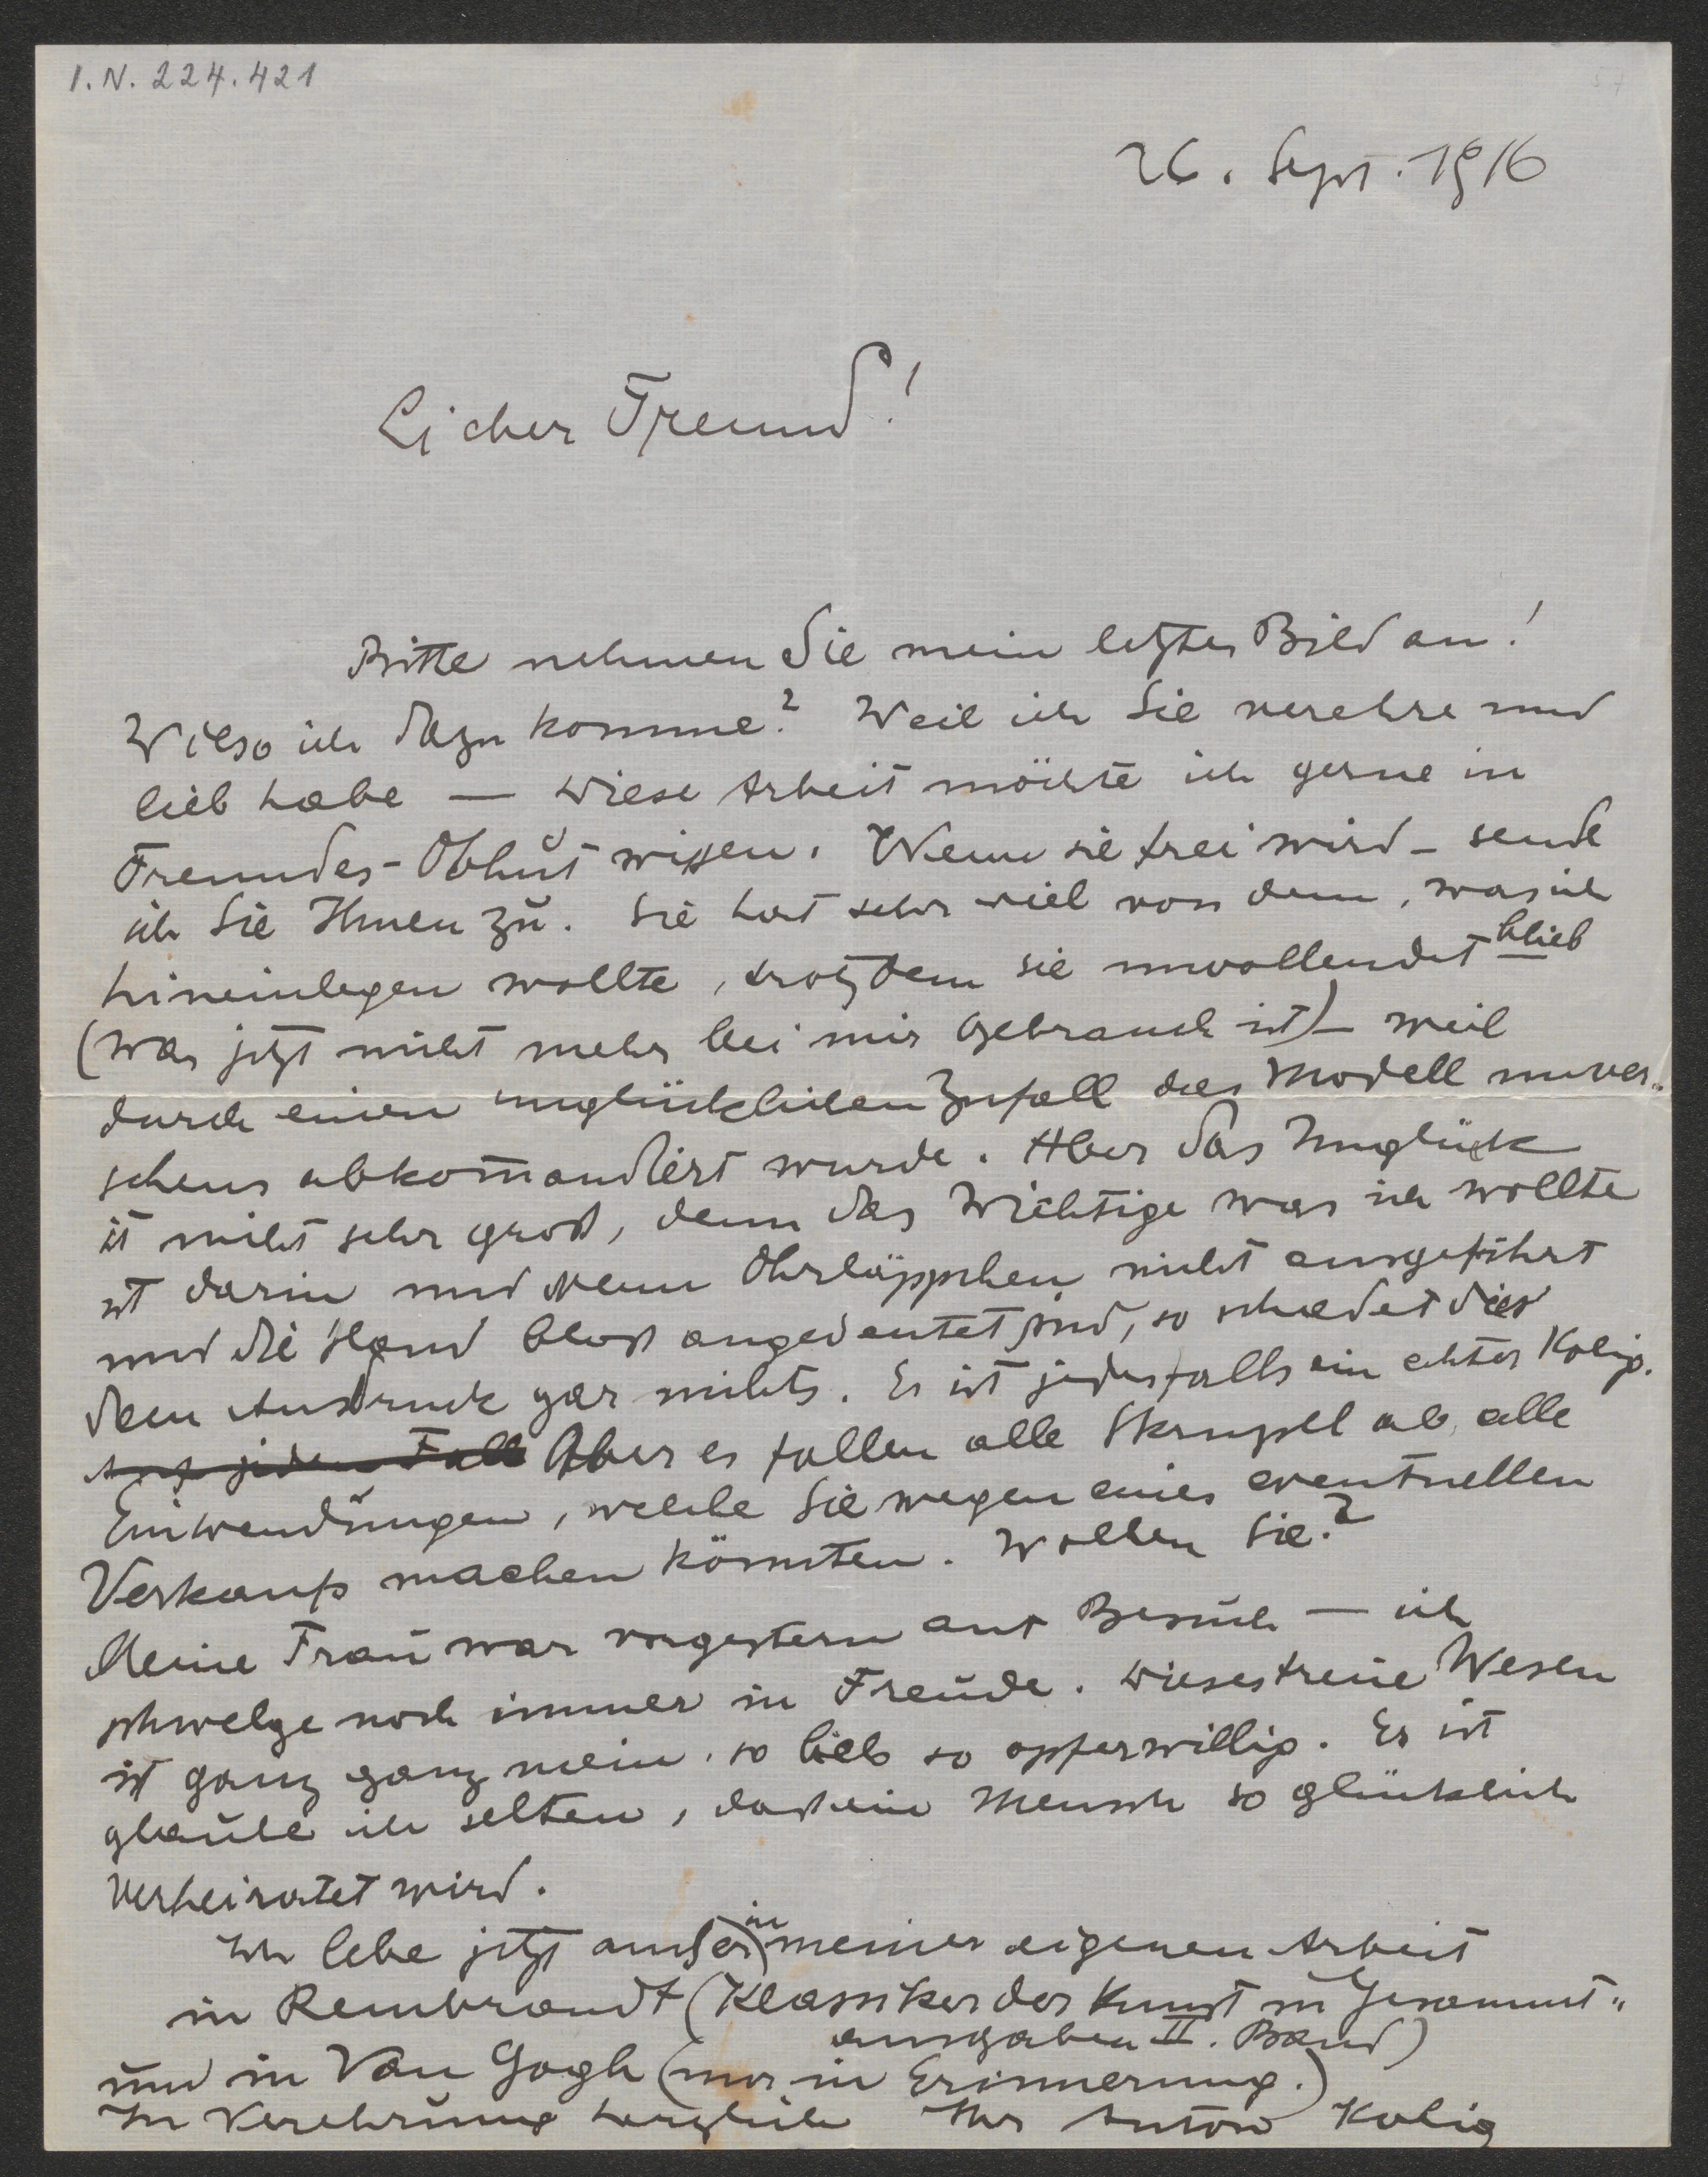 I.N. 224.421
26. Sept. 1916
Lieber Freund!
Bitte nehmen Sie mein letztes Bild an!
Wieso ich dazu komme? Weil ich Sie verehre und
lieb habe — diese Arbeit möchte ich gerne in
Freundes-Obhut wissen. Wenn sie frei wird – sende
ich Sie Ihnen zu. Sie hat sehr viel von dem, was ich
hineinlegen wollte, trotzdem sie unvollendet blieb
(was jetzt nicht mehr bei mir Gebrauch ist) – weil
durch einen unglücklichen Zufall das Modell unver„
sehens abkom̄andiert wurde. Aber das Unglück
ist nicht sehr groß, denn das Wichtige was ich wollte
ist darin und wenn Ohrläppchen nicht ausgeführt
und die Hand bloß angedeutet sind, so schadet dies
dem Ausdruck gar nichts. Es ist jedesfalls ein echter Kolig.
Auf jeden Fall Aber es fallen alle Skrupel ab, alle
Einwendungen, welche Sie wegen eines eventuellen
Verkaufs machen könnten. Wollen Sie?
Meine Frau war vorgestern auf Besuch — ich
schwelge noch immer in Freude. Dieses treue Wesen
ist ganz ganz mein, so lieb so opferwillig. Es ist
glaube ich selten, daß ein Mensch so glücklich
verheiratet wird.
Ich lebe jetzt außer in meiner eigenen Arbeit
in Rembrandt (Klassiker der Kunst in Gesammt„
ausgaben II. Band)
und in Van Gogh (nur in Erinnerung.)
In Verehrung herzlich Ihr Anton Kolig